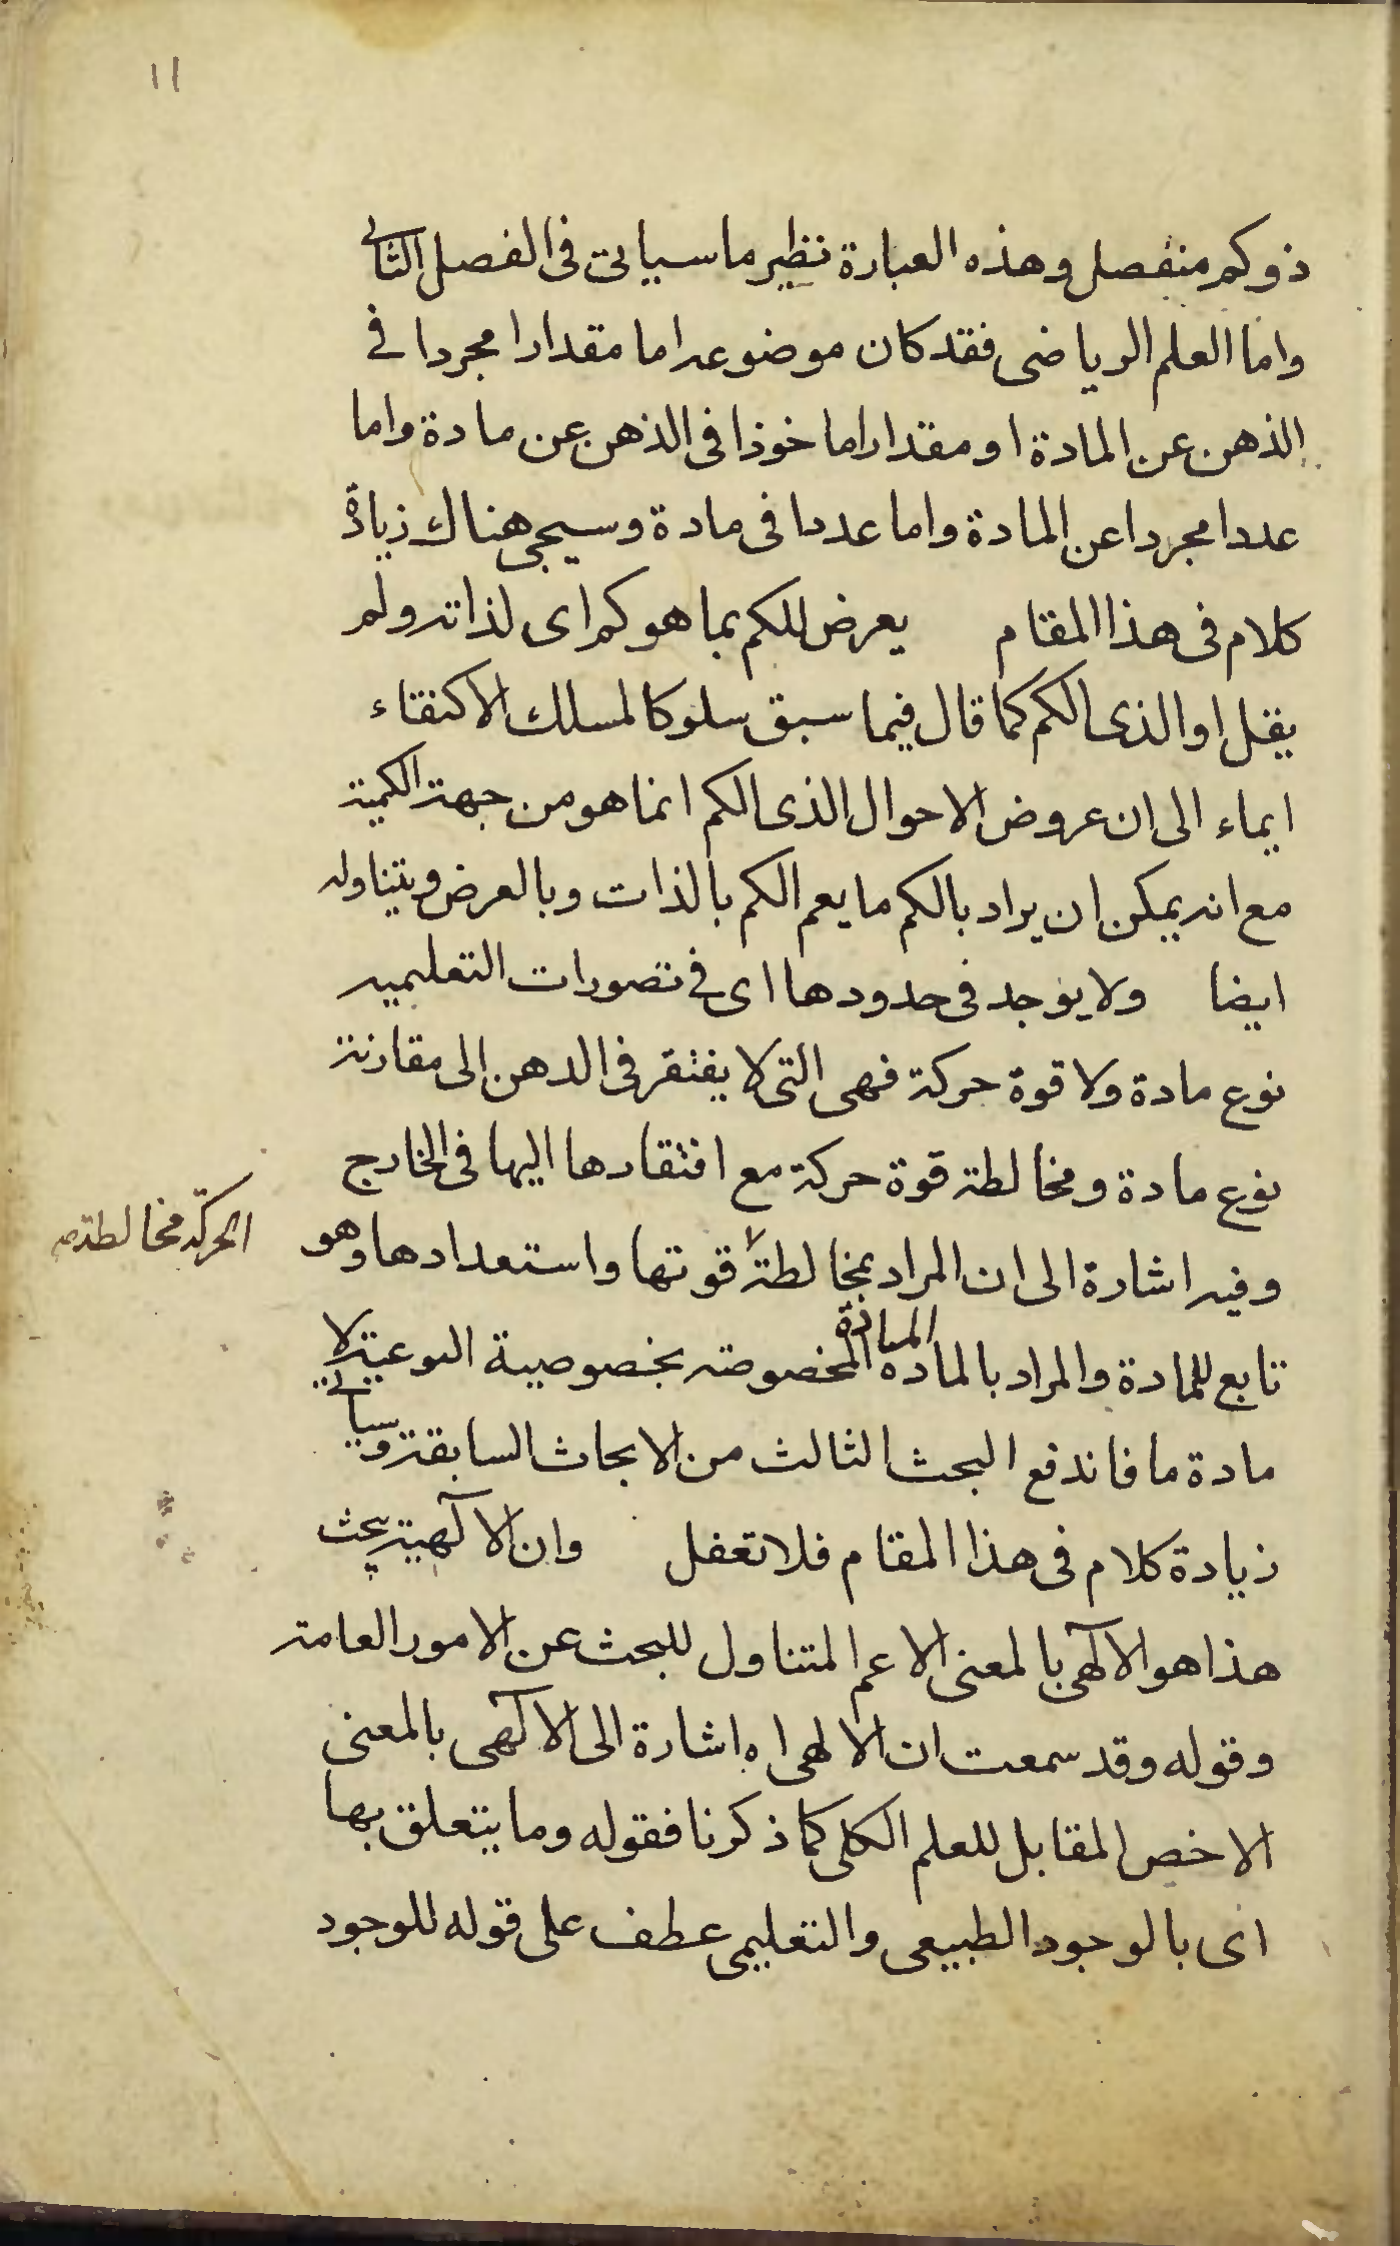 ١١
ذو كم منفصل وهذه العبارة نظير ما سياتى فى الفصل الثانى
واما العلم الرياضى فقد كان موضوعه اما مقدارا مجردا فى
الذهن عن المادة او مقدارا ماخوذا فى الذهن عن مادة واما
عددا مجردا عن المادة واما عددا فى مادة وسيجى هناك زيادة
كلام فى هذا المقام يعرض للكم بما هو كم اى لذاته ولم
يقل او الذى الكم كما قال فيما سبق سلوكا لمسلك الاكتفاء
ايماء الى ان عروض الاحوال الذى الكم انما هو من جهة الكمية
مع انه يمكن ان يراد بالكم ما يعم الكم بالذات وبالعرض ويتناوله
ايضا ولا يوجد فى حدودها اى فى تصورات التعليميه
نوع مادة ولا قوة حركة فهى التى لا يفتقر فى الدهن الى مقارنة
نوع مادة ومخالطة قوة حركة مع افتقارها اليها فى الخارج
وفيه اشارة الى ان المراد بمخالطة قوتها واستعدادها وهو
الحركة مخالطة صح
تابع للمادة والمراد بالماده المادة المخصوصة بخصوصية النوعية لا
مادة ما فاندفع البحث الثالث من الابحاث السابقة وسياتى
زيادة كلام فى هذا المقام فلا تغفل وان الالهية يبحث
هذا هو الالهى بالمعنى الاعم المتناول للبحث عن الامور العامة
وقوله وقد سمعت ان الالهى اه اشارة الى الالهى بالمعنى
الاخص المقابل للعلم الكلى كما ذكرنا فقوله وما يتعلق بها
اى بالوجود الطبيعى والتعليمى عطف على قوله للوجود